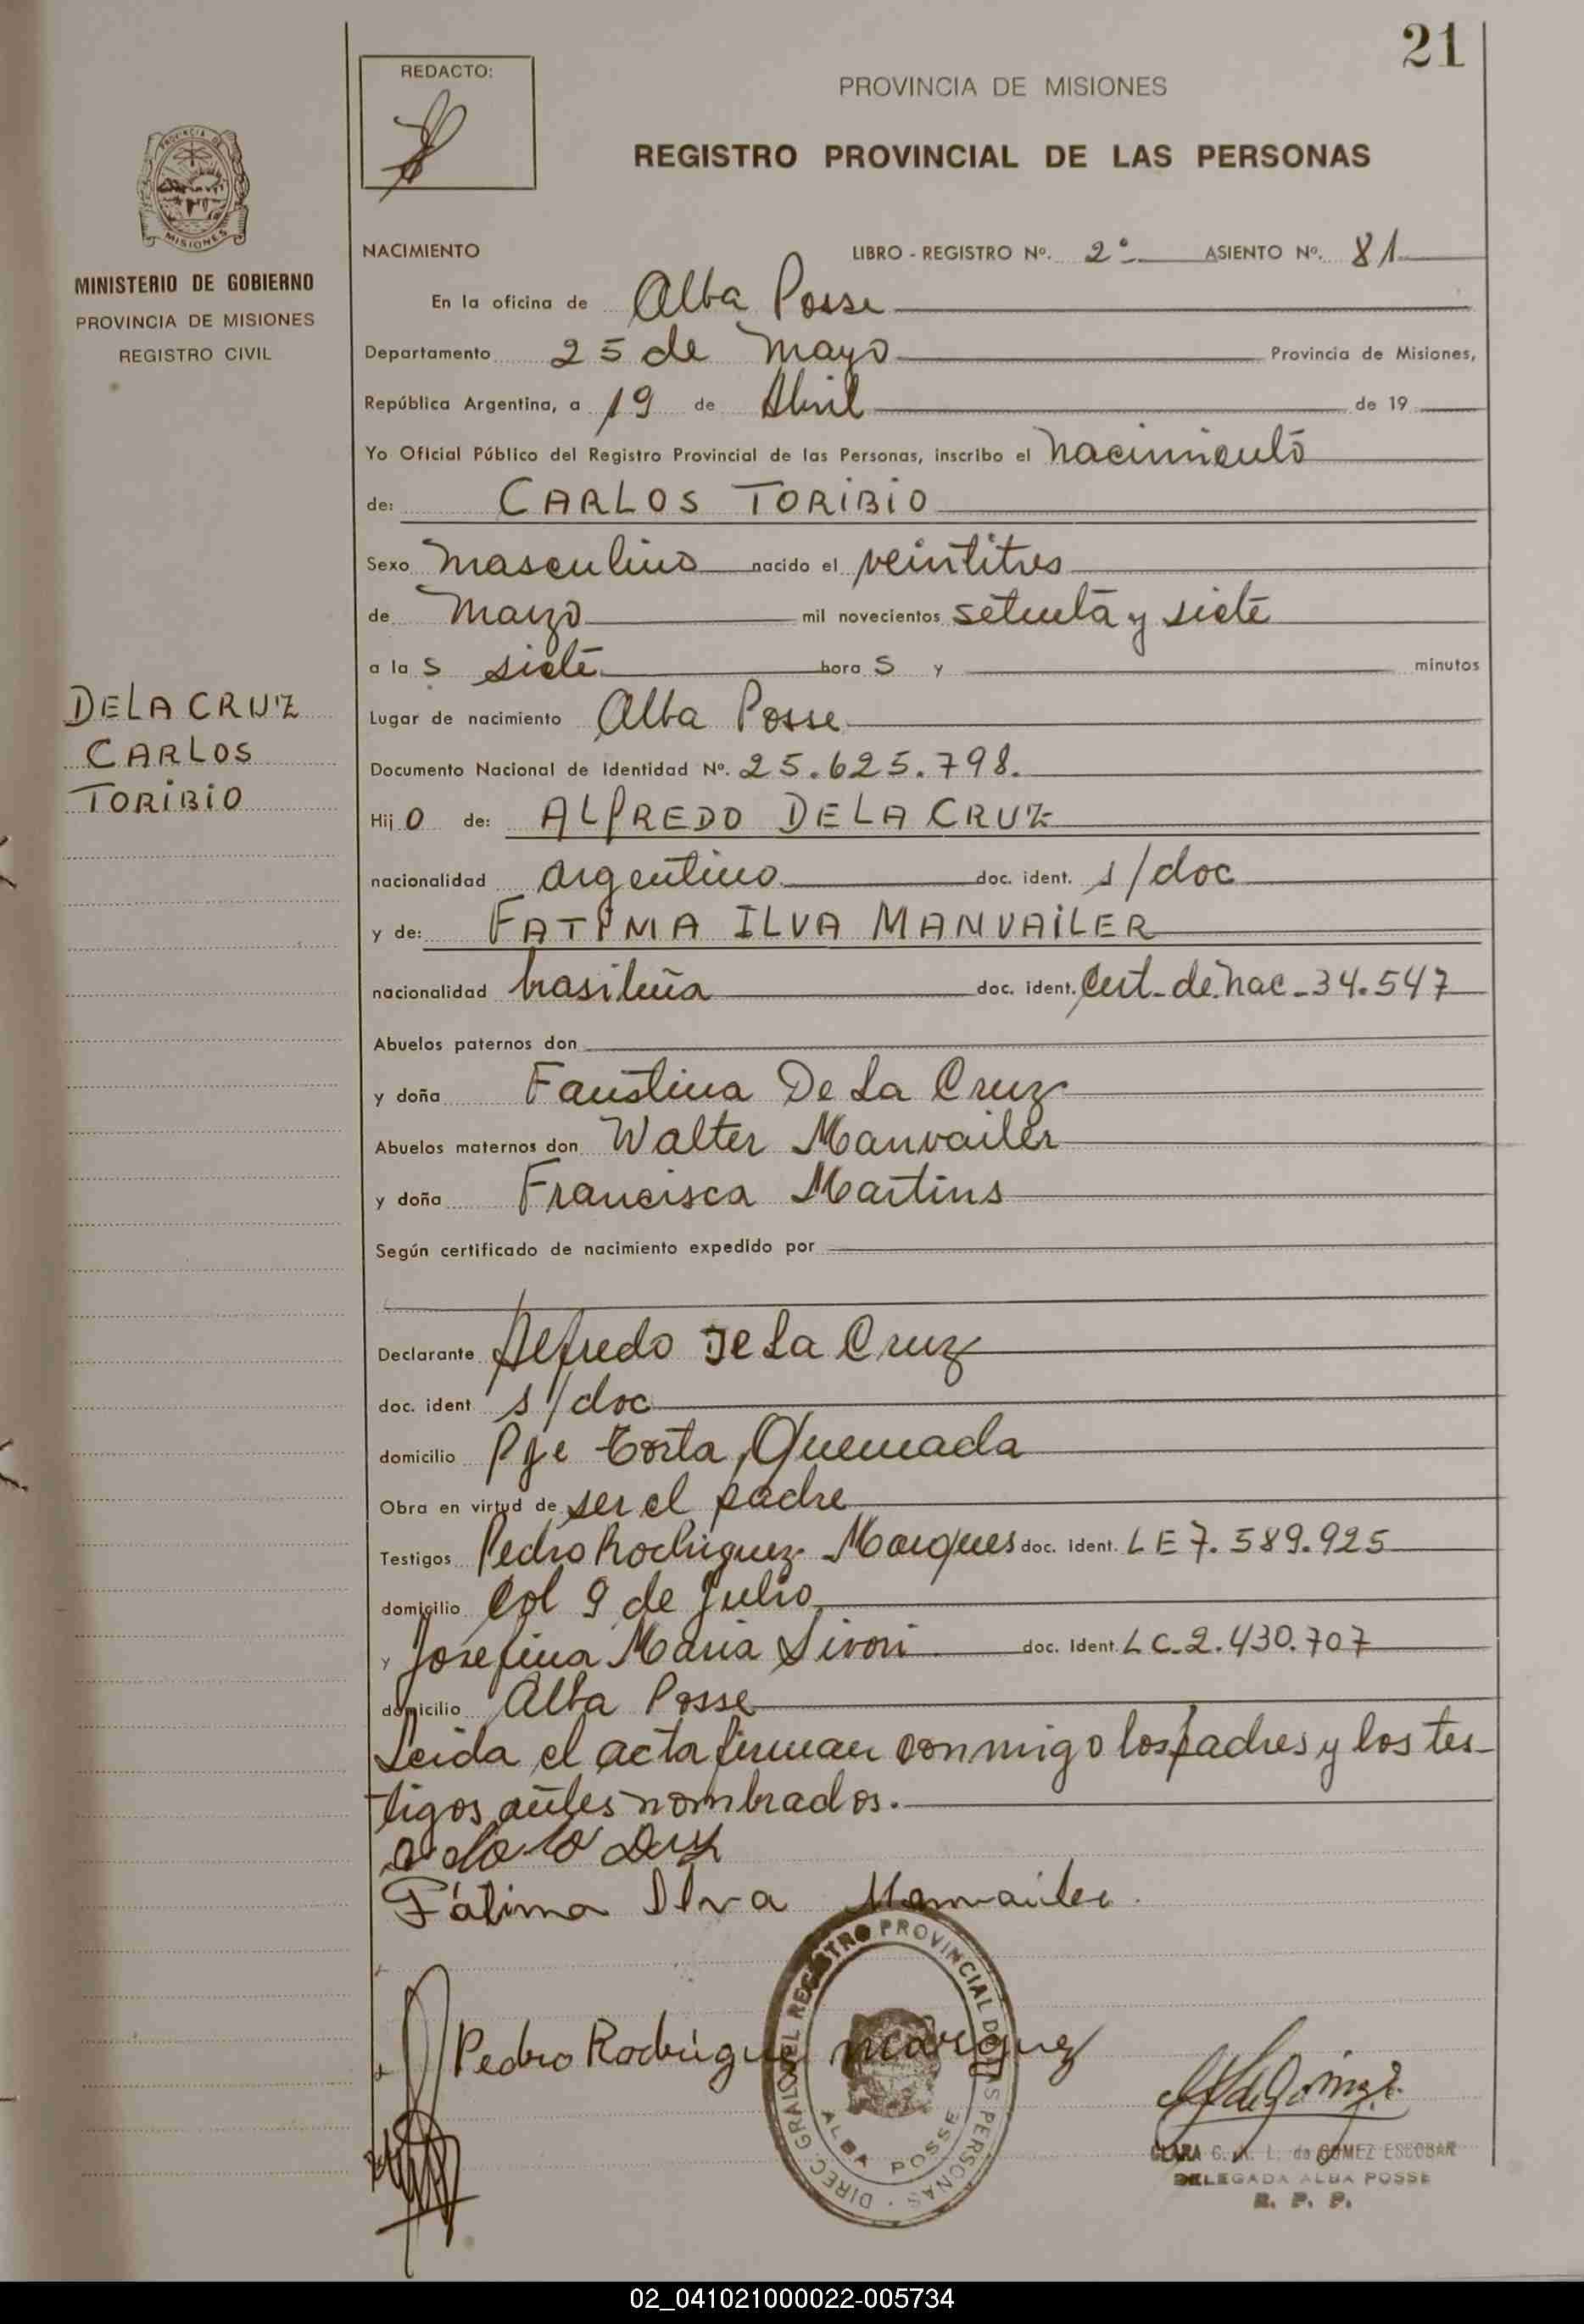 21
REDACTO:
PROVINCIA DE MISIONES
REGISTRO PROVINCIAL DE LAS PERSONAS
PROVINCIA DE
MISIONES
MINISTERIO DE GOBIERNO
PROVINCIA DE MISIONES
REGISTRO CIVIL
NACIMIENTO LIBRO - REGISTRO Nº. 2º ASIENTO Nº. 81
En la oficina de Alba Posse
Departamento 25 de Mayo Provincia de Misiones,
República Argentina, a 19 de Abril de 19
Yo Oficial Público del Registro Provincial de las Personas, inscribo el nacimiento
de: CARLOS TORIBIO
Sexo masculino nacido el veintitres
de Marzo mil novecientos setenta y siete
a la s siete hora s y minutos
DE LA CRUZ
CARLOS
TORIBIO
Lugar de nacimiento Alba Posse
Documento Nacional de Identidad Nº. 25.625.798.
Hij o de: ALFREDO DE LA CRUZ
nacionalidad argentino doc. ident. s/doc
y de: FATIMA ILVA MANVAILER
nacionalidad brasileña doc. ident. Cert. de Nac - 34.547
Abuelos paternos don
y doña Faustina De La Cruz
Abuelos maternos don Walter Manvailer
y doña Francisca Martins
Según certificado de nacimiento expedido por
Declarante Alfredo De La Cruz
doc. ident s/doc
domicilio Pje Torta Quemada
Obra en virtud de ser el padre
Testigos Pedro Rodriguez Marques doc. ident. LE 7.589.925
domicilio Col 9 de Julio
y Josefina Maria Sivori doc. Ident. LC. 2.430.707
domicilio Alba Posse
Leida el acta firman conmigo los padres y los tes-
tigos antes nombrados.
Fátima Ilva Manvailer
Pedro Rodrígues Marquez
DIREC. GRAL. DEL REGISTRO PROVINCIAL DE LAS PERSONAS
ALBA POSSE
CLARA C. A. L. de GOMEZ ESCOBAR
DELEGADA ALBA POSSE
R. P. P.
02_041021000022-005734